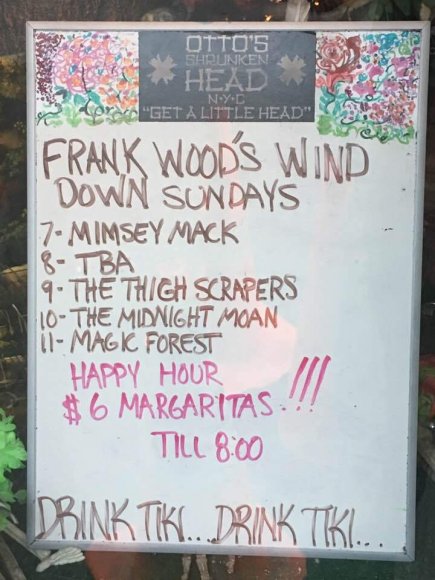 OTTO'S
SHRUNKEN
HEAD
N•Y•C
"GET A LITTLE HEAD"
FRANK WOOD'S WIND
DOWN SUNDAYS
7- MIMSEY MACK
8- TBA
9- THE THIGH SCRAPERS
10- THE MIDNIGHT MOAN
11- MAGIC FOREST
HAPPY HOUR
$6 MARGARITAS.!!!
TILL 8:00
DRINK TIKI... DRINK TIKI...